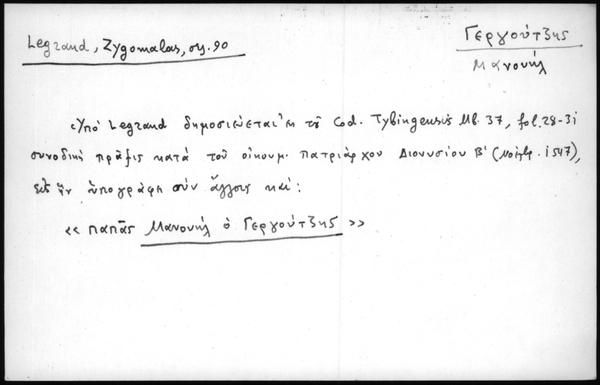 Legrand, Zygomalas, σελ. 90
Γεργούτζης
Μανουήλ
Ὑπὸ Legrand δημοσιεύεται ἐκ τοῦ Cod. Tybingensis Mb. 37, fol. 28-31
συνοδικὴ πρᾶξις κατὰ τοῦ οἰκουμ. πατριάρχου Διονυσίου Β' (Νοέμβρ. 1547),
εἰς ἣν ὑπογράφει σὺν ἄλλοις καί:
<< παπᾶς Μανουὴλ ὁ Γεργούτζης >>